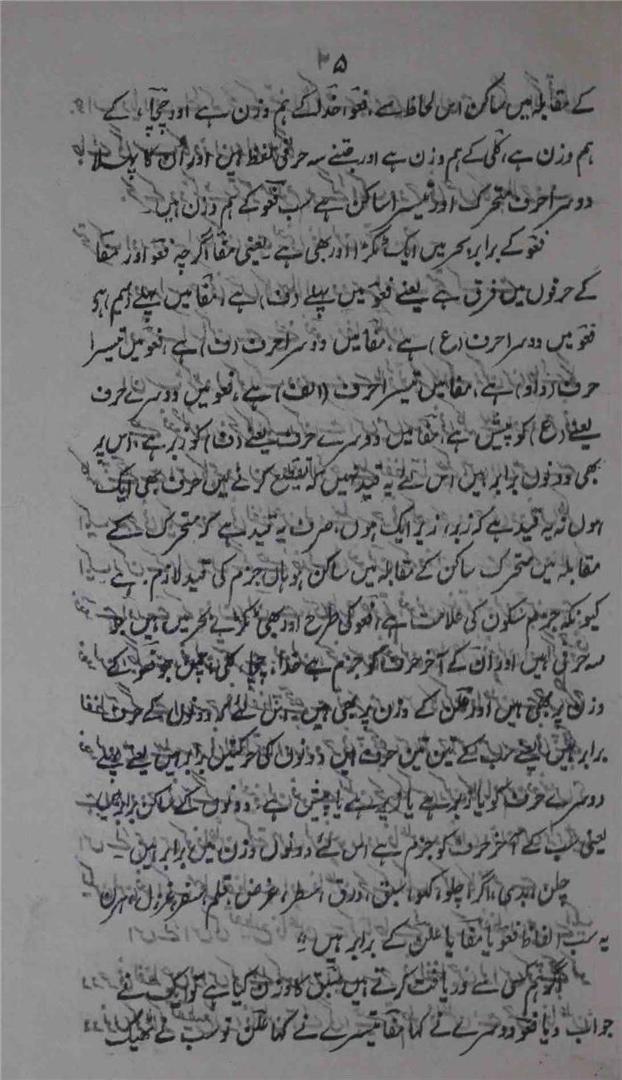 ۲۵
کے مقابلہ میں ساکن اس لحاظ سے، فعو، خدا کے ہم وزن ہے اور چچا، کے
ہم وزن ہے، کلی کے ہم وزن ہے اور جتنے سہ حرفی لفظ ہیں اور اُن کا پہلا
دوسرا حرف متحرک اور تیسرا ساکن ہے سب فعو کے ہم وزن ہیں۔
فعو کے برابر بحر میں ایک ٹکڑا اور بھی ہے یعنی مفا اگرچہ فعو اور مفا
کے حرفوں میں فرق ہے یعنے فعو میں پہلے (ف) ہے، مفا میں پہلے (میم) ہے
فعو میں دوسرا حرف (ع) ہے، مفا میں دوسرا حرف (ف) ہے، فعو میں تیسرا
حرف (واو) ہے، مفا میں تیسرا حرف (الف) ہے، فعو میں دوسرے حرف
یعنے (ع) کو پیش ہے، مفا میں دوسرے حرف یعنے (ف) کو زبر ہے، اس پر
بھی دونوں برابر ہیں اس لئے یہ قید نہیں کہ تقطیع کرنے میں حرف بھی ایک
ہوں نہ یہ قید ہے کہ زبر، زیر ایک ہوں، صرف یہ قید ہے کہ متحرک کے
مقابلہ میں متحرک ساکن کے مقابلہ میں ساکن ہو ہاں جزم کی قید لازم ہے
کیونکہ جزم سکون کی علامت ہے، فعو کی طرح اور بھی ٹکڑے بحر میں ہیں جو
سہ حرفی ہیں اور اُن کے آخر حرف کو جزم ہے خدا، چچا، کلی، چلن جو فعو کے
وزن پر بھی ہیں اور علن کے وزن پر بھی ہیں۔ اس لئے دونوں کے حرف
برابر ہیں یعنے سب کے تین تین حرف ہیں دونوں کی حرکتیں برابر ہیں یعنے پہلے
دوسرے حرف کو یا زبر ہے یا زیر ہے یا پیش ہے۔ دونوں کے ساکن برابر ہیں
یعنی سب کے آخر حرف کو جزم ہے اس لئے دونوں وزن میں برابر ہیں۔
چلن، بدی، اگر، چلو، کہو، سبق، ورق، سطر، غرض، قلم، سفر، غزل، ہرن
یہ سب الفاظ فعو یا مفا یا علن کے برابر ہیں۔
اگر ہم کسی سے دریافت کرتے ہیں سبق کا وزن کیا ہے تو ایک نے
جواب دیا فعو دوسرے نے کہا مفا تیسرے نے کہا علن تو سب نے ٹھیک